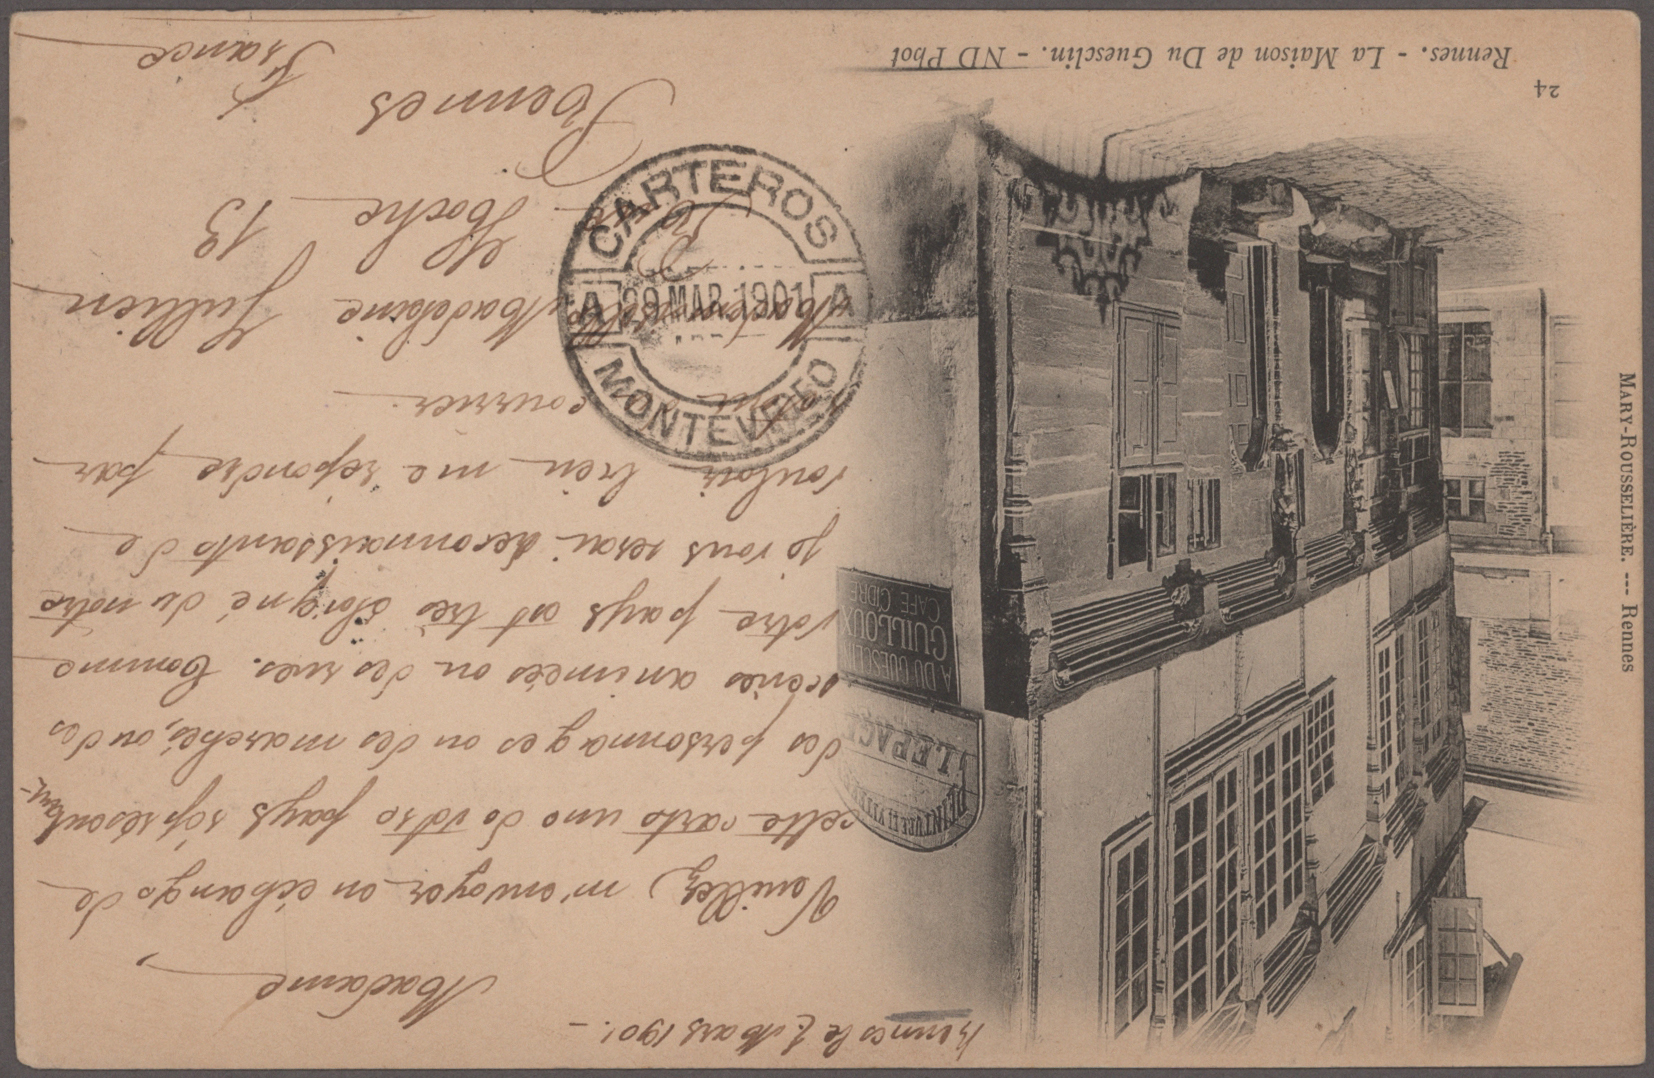 Rennes le 7 Mars 1901. -
Madame,
Veuillez m'envoyer en échange de
cette carte une de votre pays représentant
des personnages ou des marchés, ou des
scènes animées ou des rues. Comme
votre pays est très éloigné du notre
je vous serai reconnaissante de
vouloir bien me répondre par
courrier.
Mademoiselle Madeleine Jullien
13 Hoche
Rennes
France
CARTEROS
A 29 MAR 1901 A
MONTEVIDEO
PEINTURE ET VITRERIE
J. LEPAGE
A DU GUESCLIN
GUILLOUX
CAFE CIDRE
24
Rennes. - La Maison de Du Guesclin. - ND Phot
MARY-ROUSSELIÈRE. --- Rennes